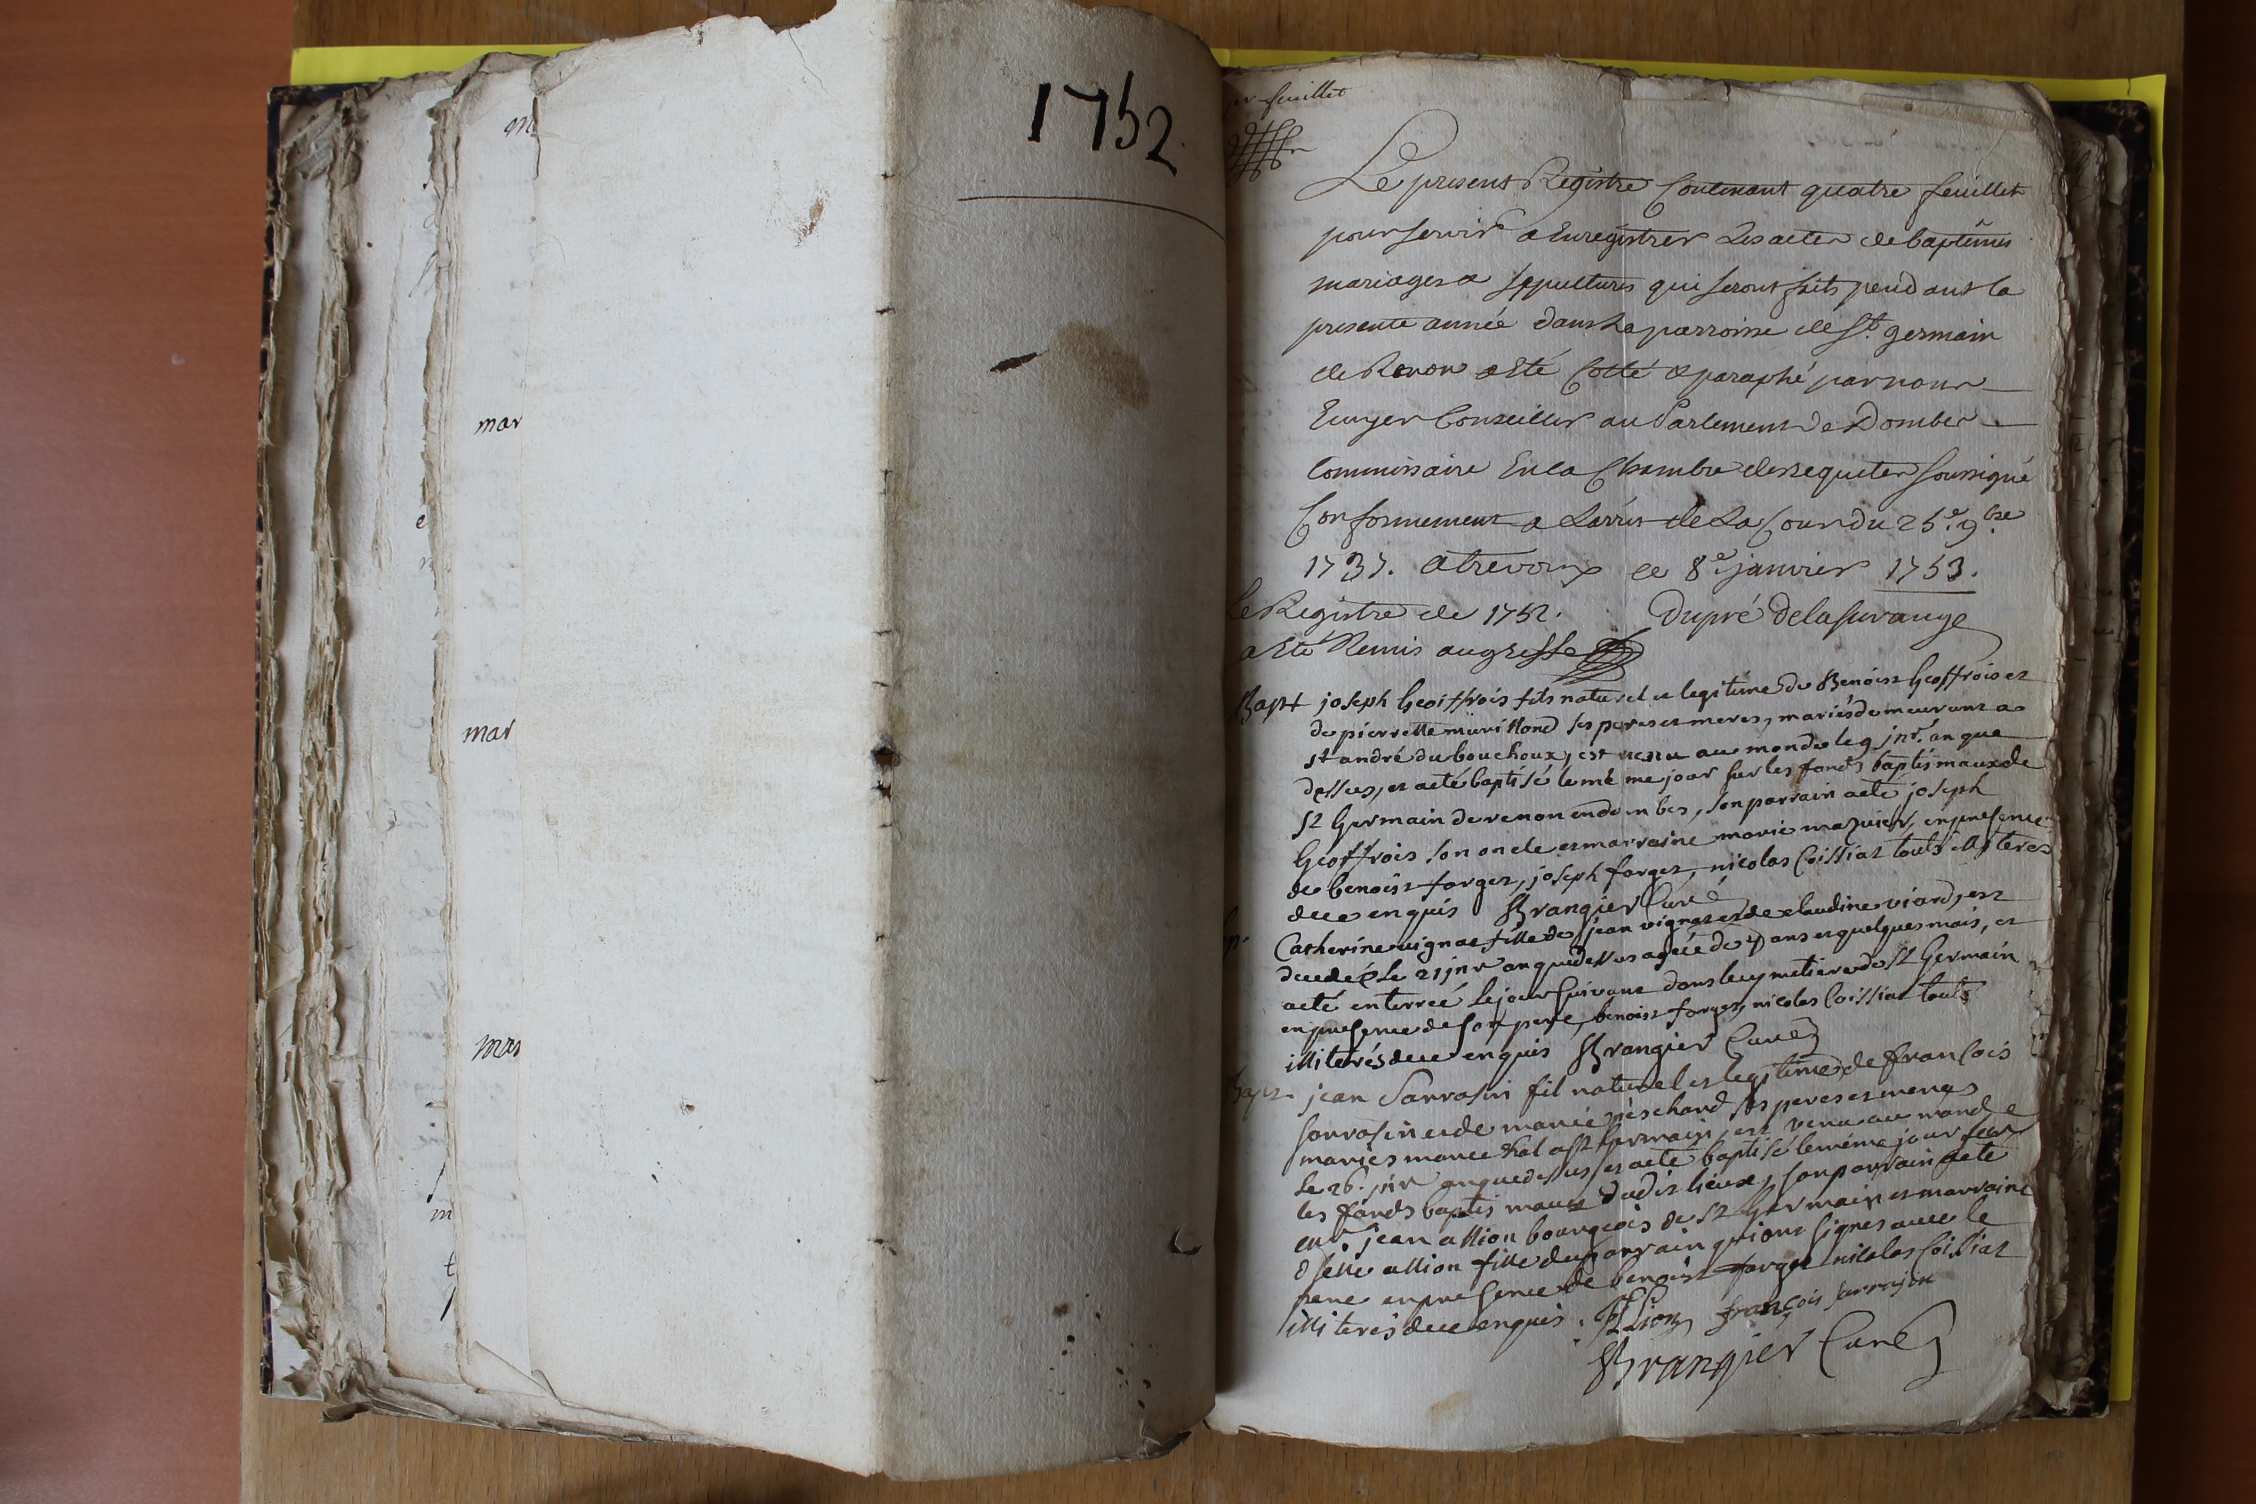 mar
mar
mar
1752.
er feuillet
Le present Registre Contenant quatre feuillets
pour servir a Enregistrer Les actes de baptêmes
mariages & sepultures qui seront faits pendant la
presente année dans La parroisse de St. germain
de Renon a Eté Cotté & paraphé par nous
Ecuyer Conseiller au Parlement De Dombes
Commissaire En la Chambre des requetes soussigné
Conformement a L'arret de La Cour du 25e. 9bre
1737. a trevoux ce 8e janvier 1753.
Le Registre de 1752.
Dupré de
a Eté Remis au greffe
Bapt joseph Geoffrois fils naturel et legitime de Benoist Geoffrois et
de pierrette ses peres et meres, mariés demeurant a
st andré du bouchoux, est venu au monde le 9 jnr. an que
dessus, et a eté baptisé le mê me jour sur les fonds baptismaux de
st Germain de renon en dombes, son parrain a eté joseph
Geoffrois son oncle et marraine marie mazuier, en presence
de benoist forges, joseph forges, nicolas Coissiat touts illiteres
de ce enquis Brangier Curé
Catherine vignat fille de jean vignat et de claudine viard, est
decedée Le 21 jnr an que dessus ageé de ans et quelques mois, et
a eté enterreé le jour suivant dans le cymetiere de st Germain
en presence de son pere, benoist forges, nicolas Coissiat touts
illiterés de ce enquis Brangier Curé
bapt. jean Sarrasin fil naturel et legitime de francois
sarrasin et de marie ses peres et meres
mariés a st Germain, est venu au monde
Le 26. jnr an que dessus, et a eté baptisé le même jour sur
les fonds baptis maux dudit lieux, son parrain a eté
jean allion bourgeois de st Germain et marraine
allion fille du parrain qui ont signes avec le
pere en presence de benoist forges nicolas Coissiat
illiterés de ce enquis. françois sarrasin
Brangier Curé